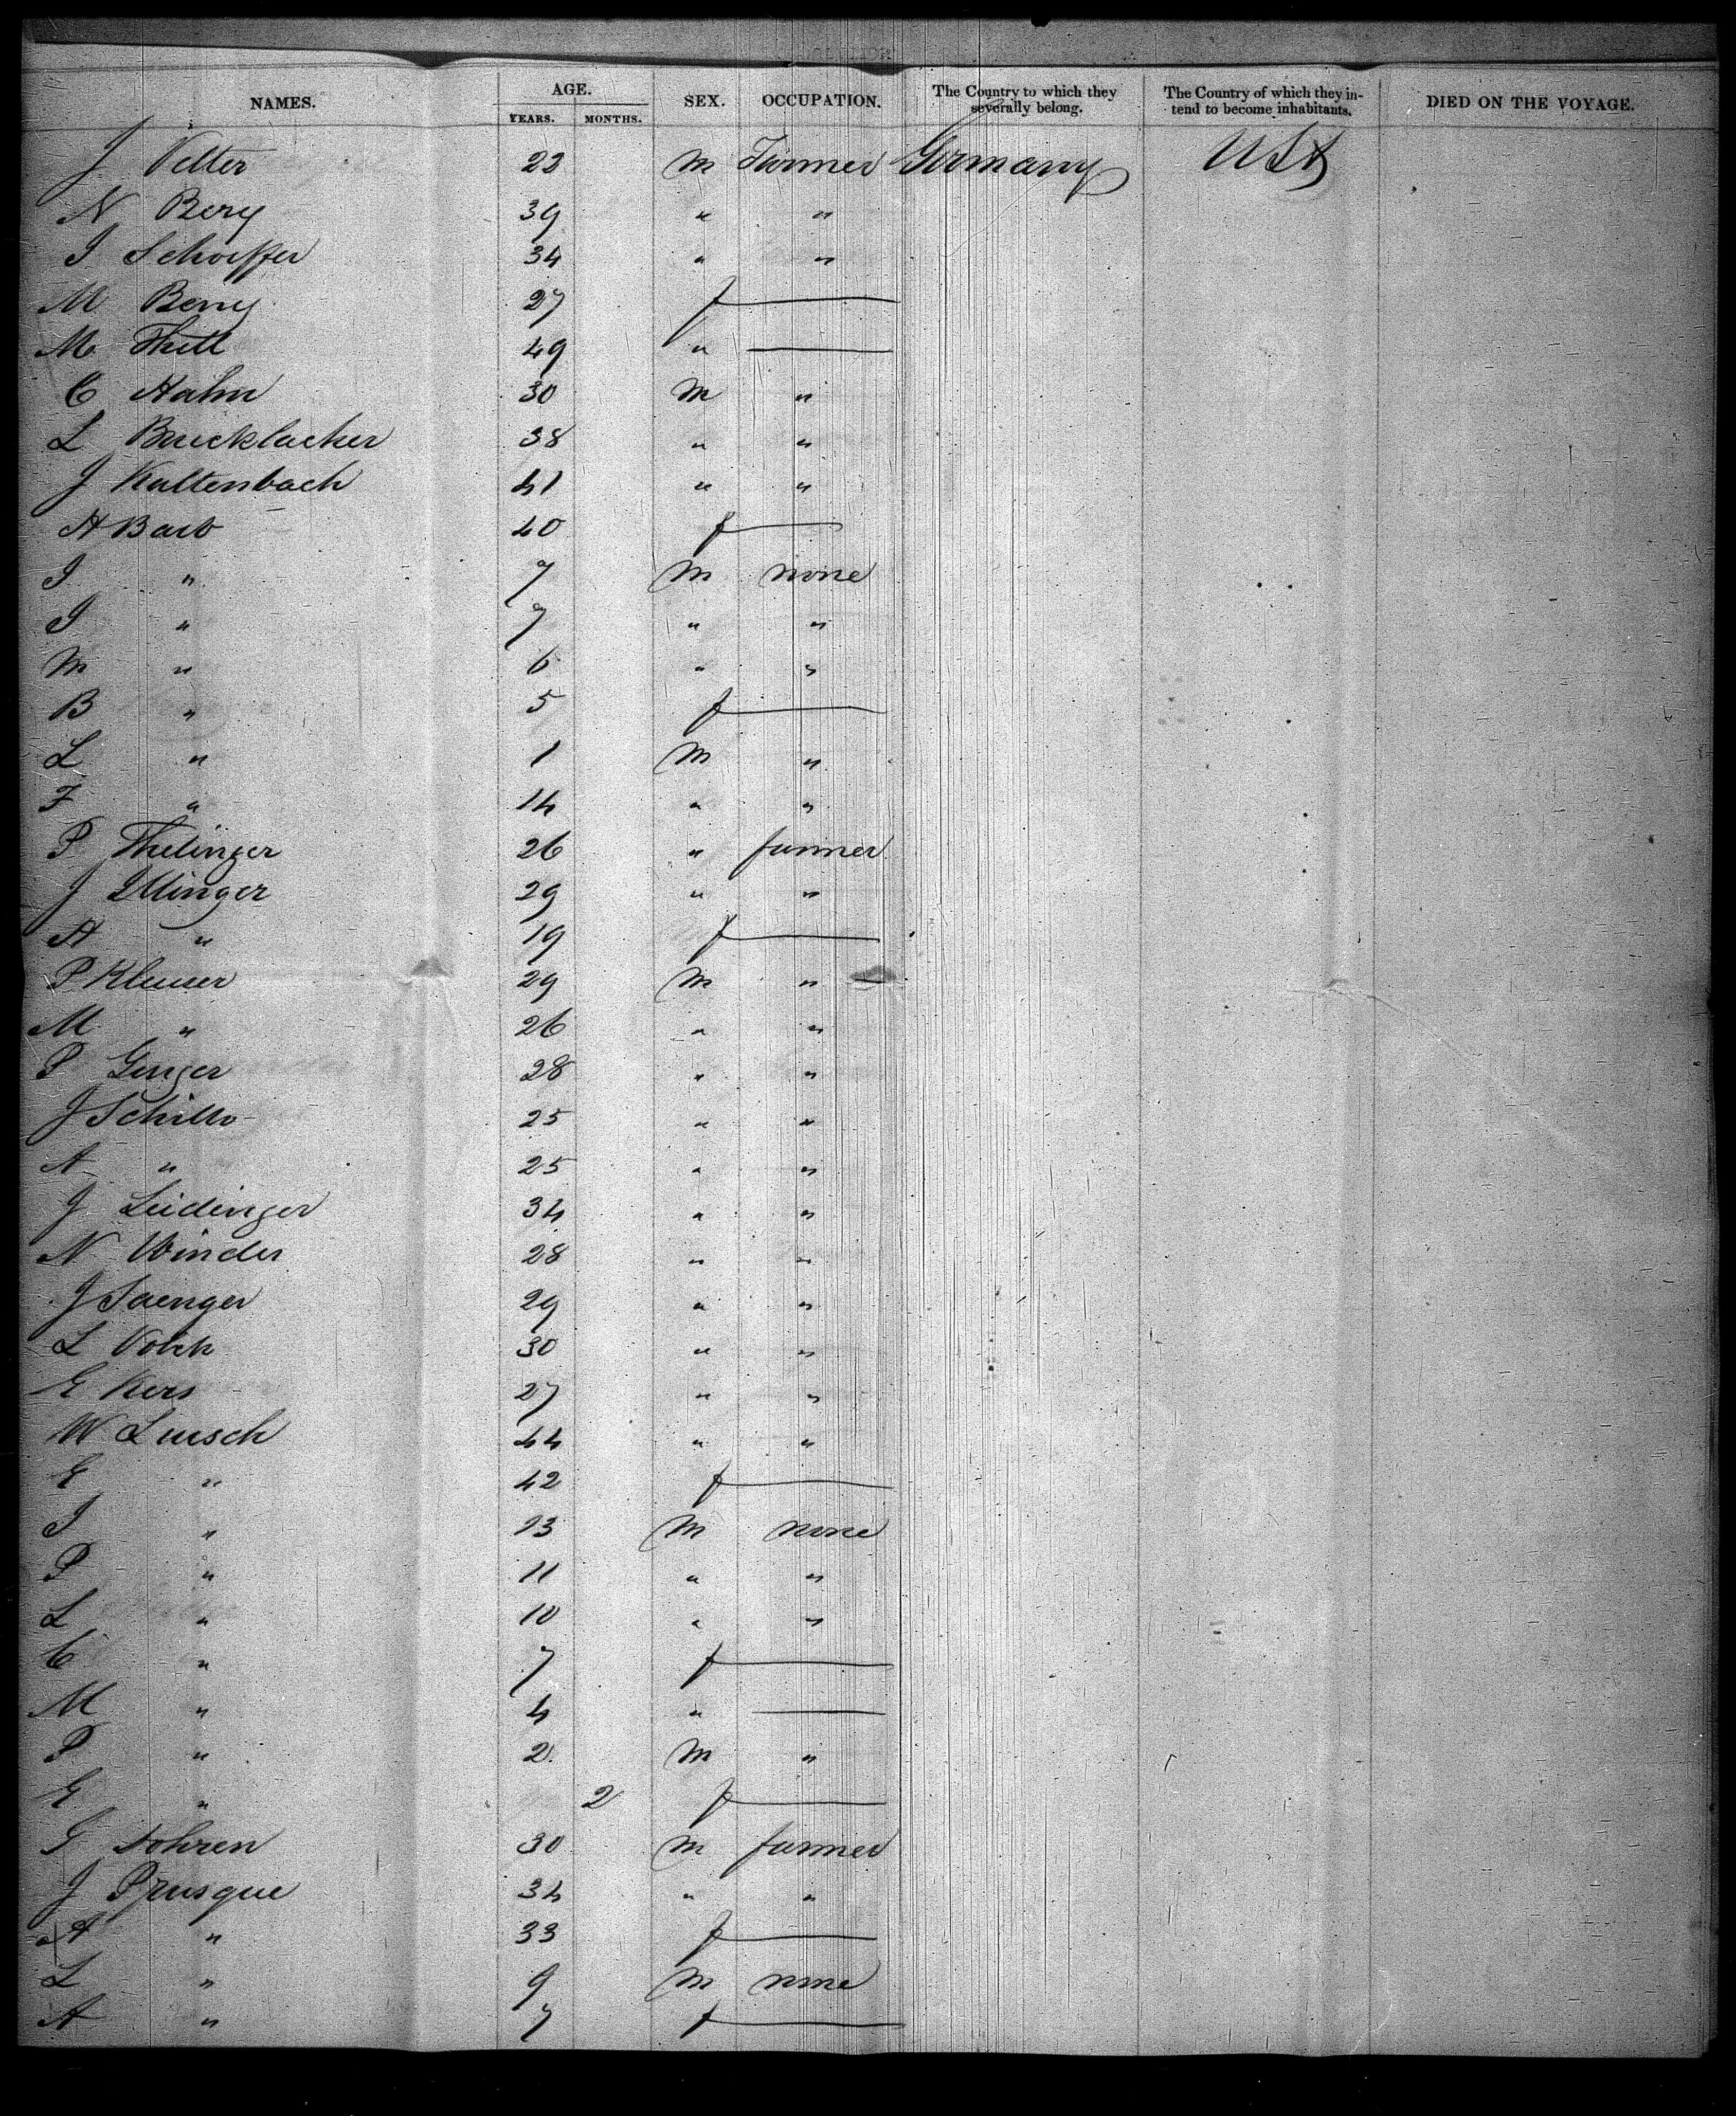 NAMES. AGE. YEARS. MONTHS. SEX. OCCUPATION. The Country to which they severally belong. The Country of which they intend to become inhabitants. DIED ON THE VOYAGE.
J Velter 22 M Farmer Germany USA
N Berg 39 " "
J Schoeffer 34 " "
M Berry 27 f —
M Thill 49 " —
C Hahn 30 M "
L 38 " "
J Kaltenbach 41 " "
A Barb 40 f —
J " 7 M none
J " 7 " "
M " 6 " "
B " 5 f —
L " 1 M "
F " 14 " "
P Thelinger 26 " farmer
J Illinger 29 " "
A " 19 f —
P 29 M "
M " 26 " "
P Genger 28 " "
J Schillo 25 " "
A " 25 " "
J Leidinger 34 " "
N Winder 28 " "
J Saenger 29 " "
L Volck 30 " "
E Kers 27 " "
W Lursch 44 " "
E " 42 f —
J " 13 M none
P " 11 " "
L " 10 " "
C " 7 f —
M " 4 " —
P " 2 M "
E " 2 f —
G Lohren 30 M farmer
J Prusque 34 " "
A " 33 f —
L " 9 M none
A " 7 f —